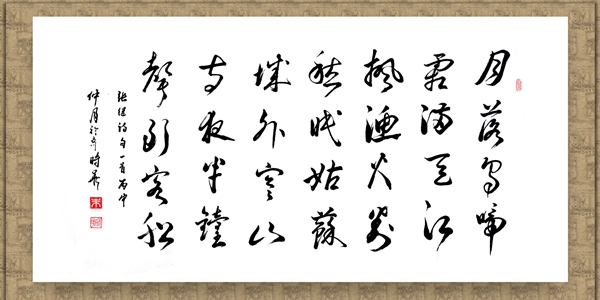 月落烏啼
霜滿天江
楓漁火對
愁眠姑蘇
城外寒山
寺夜半鐘
聲到客船
張繼詩句一首丙申
仲月於